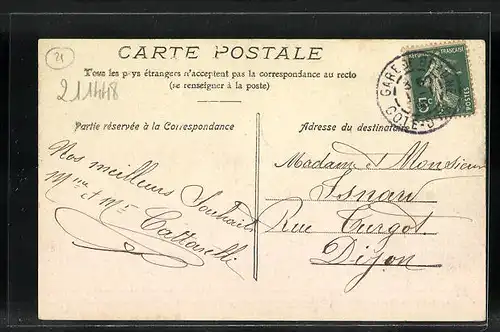 21
211448
CARTE POSTALE
Tous les pays étrangers n'acceptent pas la correspondance au recto
(se renseigner à la poste)
Partie réservée à la Correspondance
Adresse du destinataire
Nos meilleurs Souhaits
Mme et Mr
Madame et Monsieur
Rue Turgot
Dijon
GARE
COTE-D
FRANÇAISE
POSTES
5c